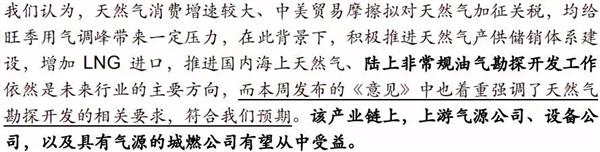 我们认为，天然气消费增速较大、中美贸易摩擦拟对天然气加征关税，均给
旺季用气调峰带来一定压力，在此背景下，积极推进天然气产供储销体系建
设，增加 LNG 进口，推进国内海上天然气、陆上非常规油气勘探开发工作
依然是未来行业的主要方向，而本周发布的《意见》中也着重强调了天然气
勘探开发的相关要求，符合我们预期。该产业链上，上游气源公司、设备公
司，以及具有气源的城燃公司有望从中受益。